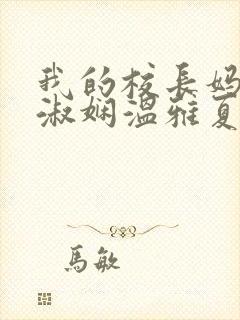 我的校長妈
淑娴温雅夏
馬敏